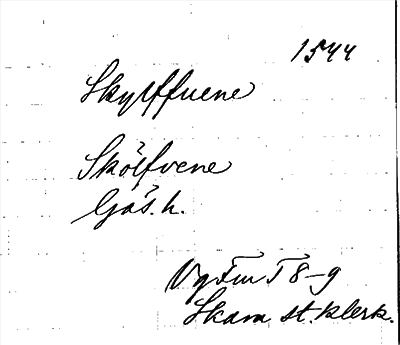 1544
Skylffuene
Skölfvene
Gäs. h.
Vg Fm T 8-9
Skara st. klerk.